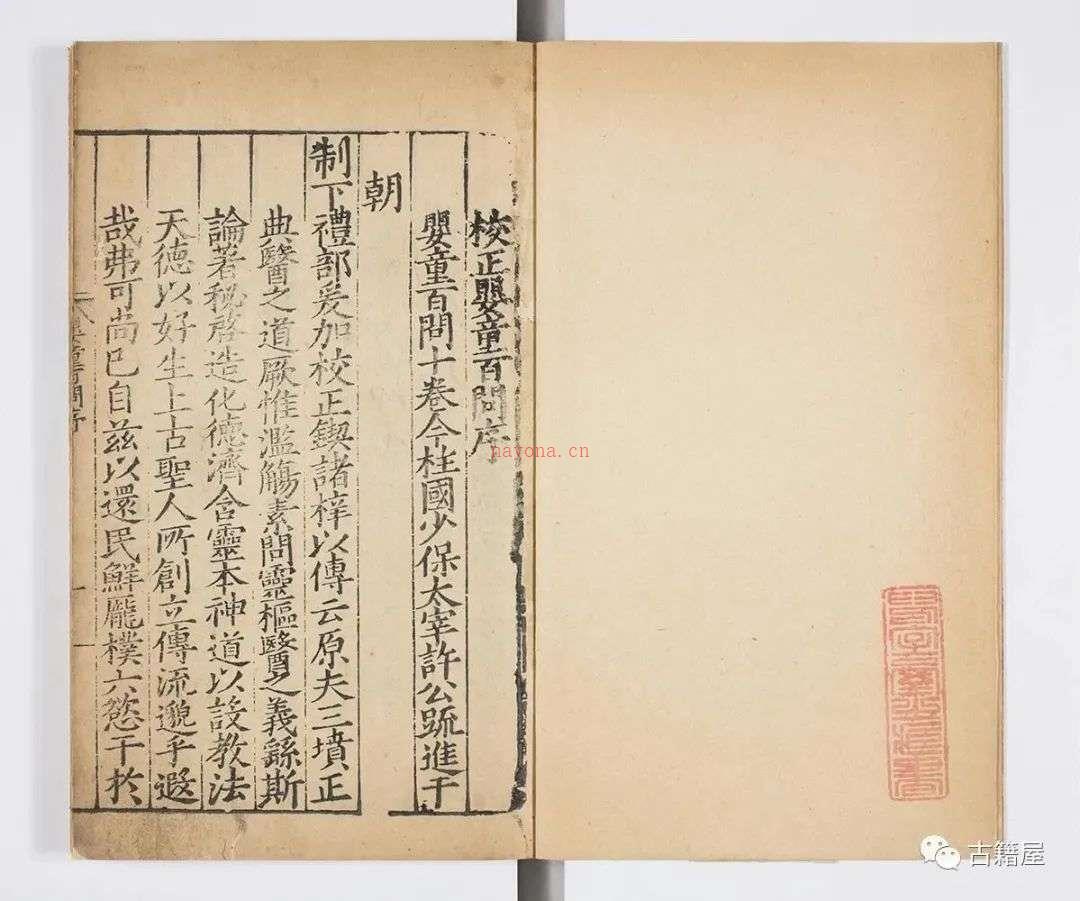 校正嬰童百問序
嬰童百問十卷今柱國少保太宰許公疏進于
朝
制下禮部爰加校正鍥諸梓以傳云原夫三墳正
典醫之道厥惟濫觴素問靈樞醫之義繇斯
論著秘啓造化德濟含靈本神道以設教法
天德以好生上古聖人所創立傳流邈乎遐
哉弗可尚已自兹以還民鮮龐樸六慾干於
nayona.cn
古籍屋